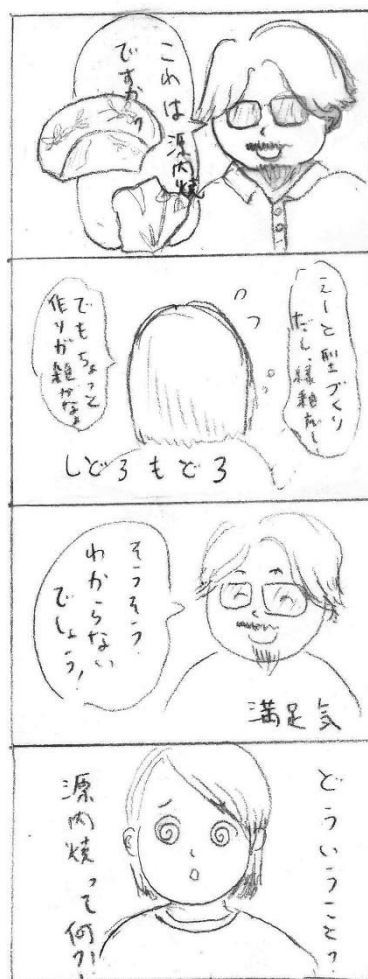 これは源内焼
ですか?
えーと型づくり
だし、緑釉だし
でもちょっと
作りが雑かなぁ
しどろもどろ
そうそう
わからない
でしょう!
満足気
どういうこと?
源内焼って何?!